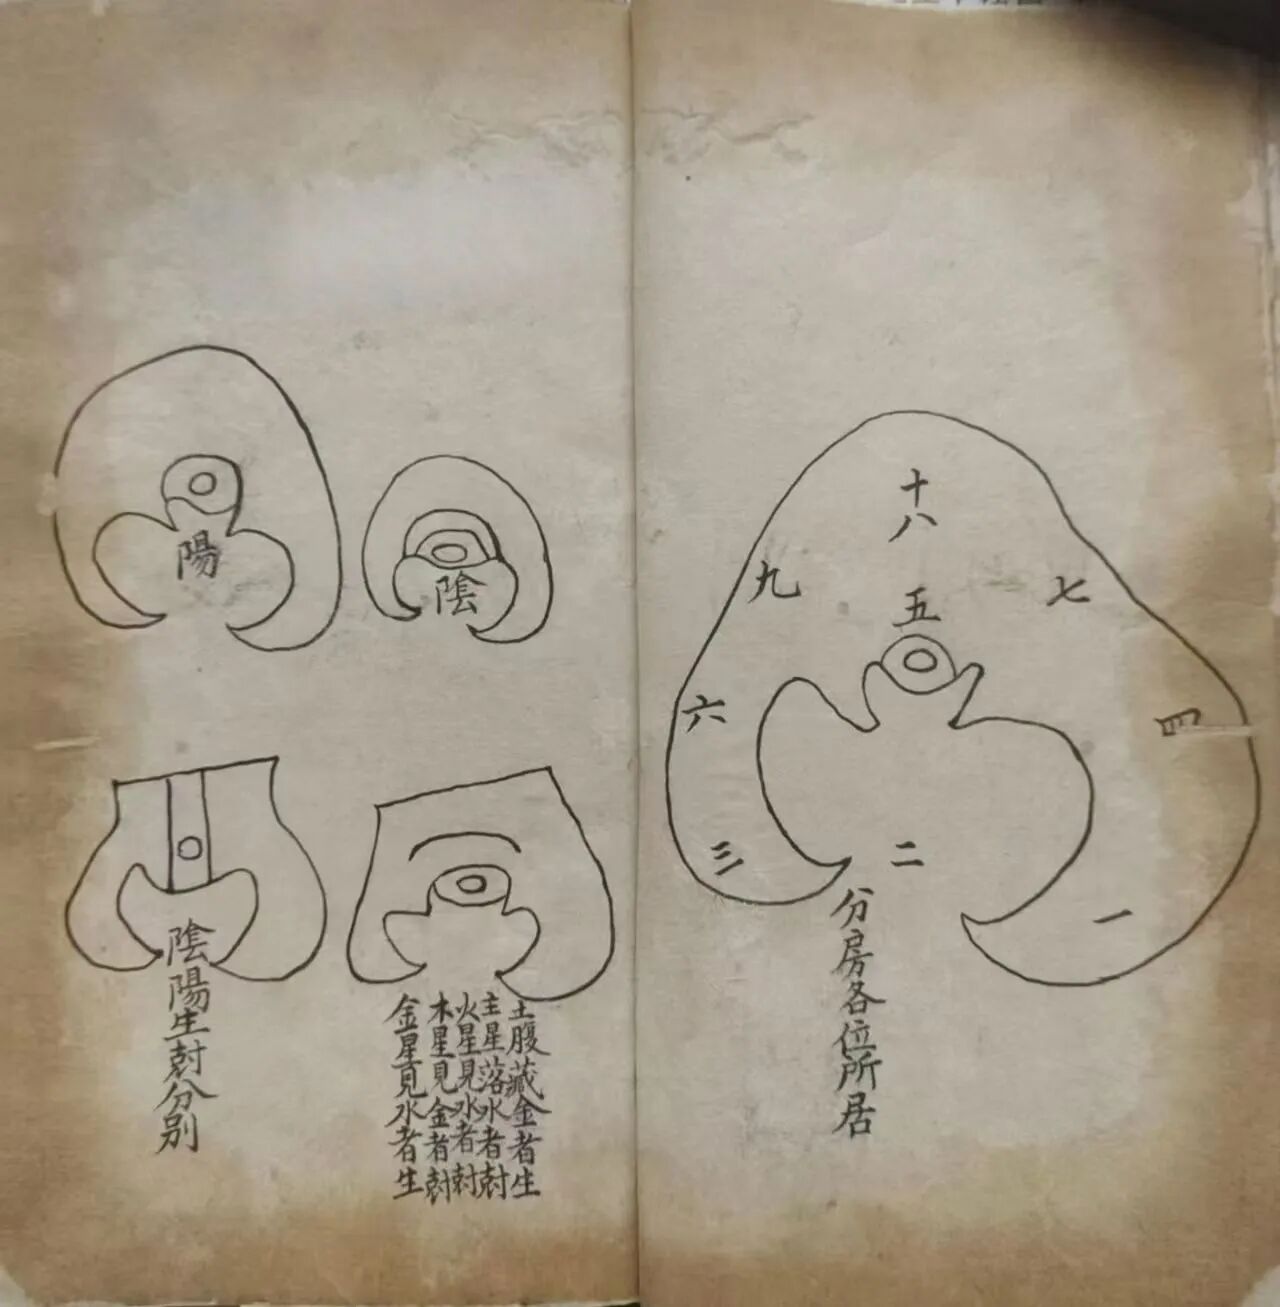 十八
七
五
九
四
六
一
二
三
分房各位所居
陰
陽
土腹藏金者生
主星落水者尅
火星見水者尅
木星見金者尅
金星見水者生
陰陽生尅分別